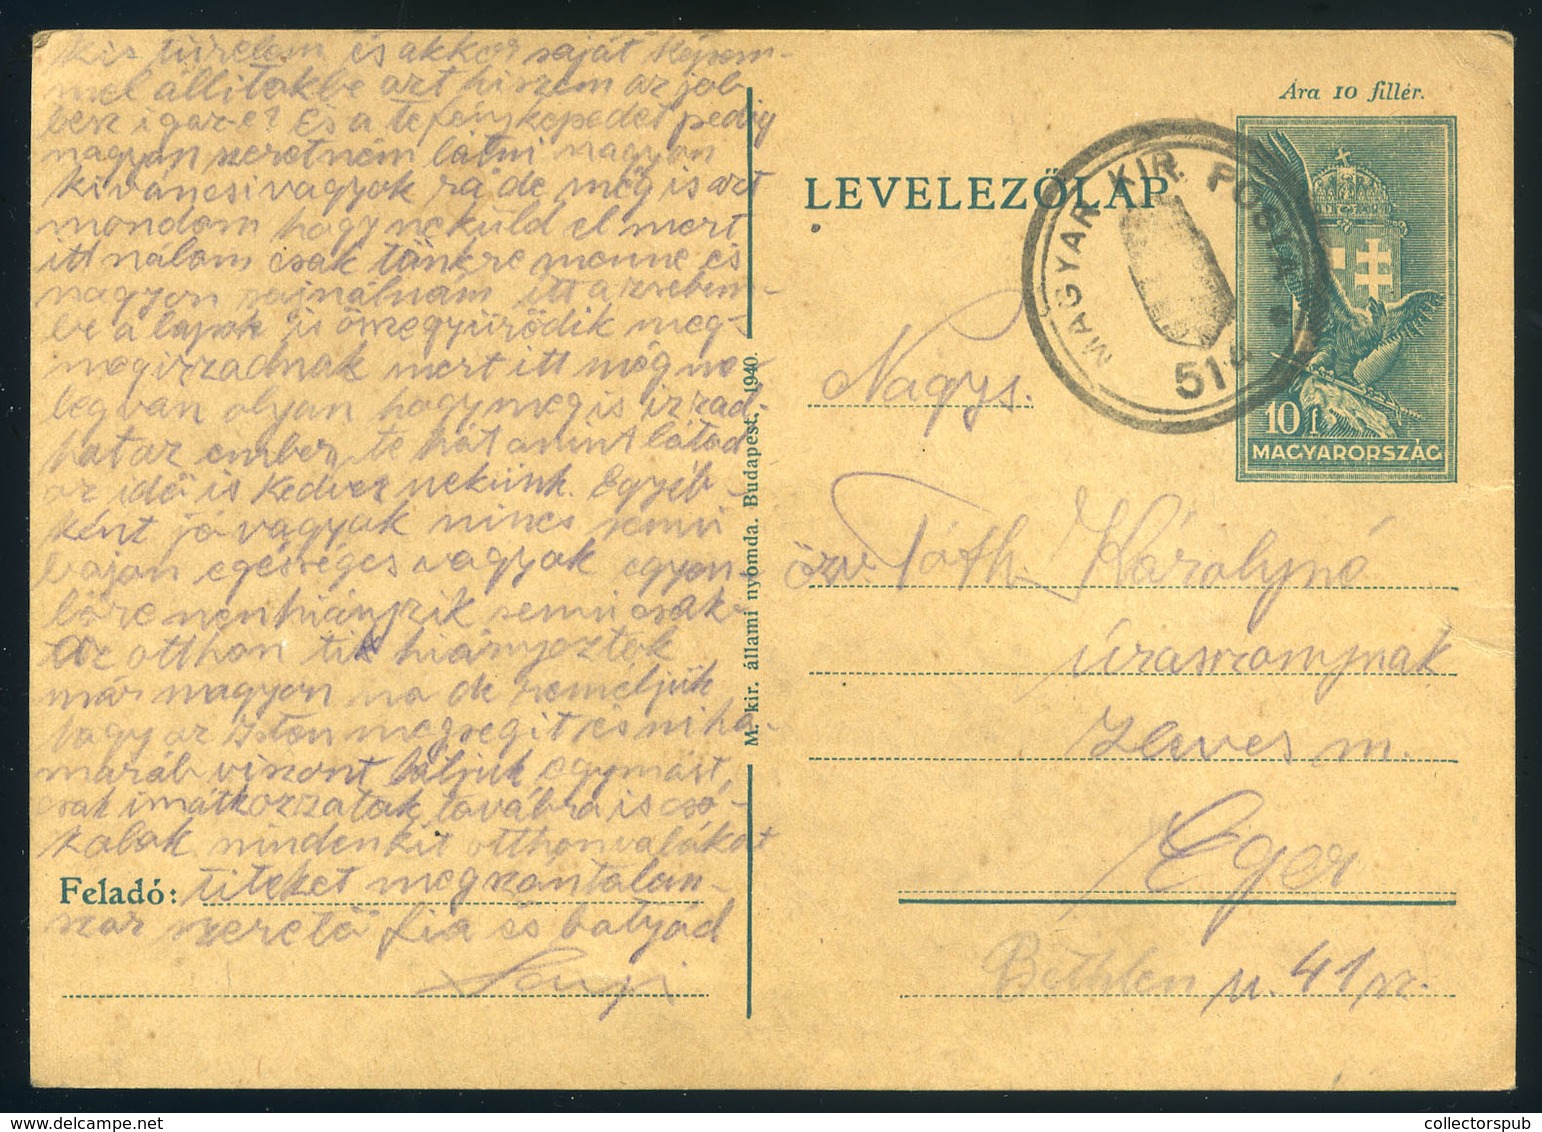 kis türelem és akkor saját képem-
mel állitokbe azt hiszem az job
besz igaz e? És a te fényképedet pedig
nagyon szeretném látni nagyon
kiváncsi vagyok rá de még is azt
mondom hogy ne küld el mert
itt nálam csak tönkre menne és
nagyon sajnálnám itt a zsebem-
be a lapok is összegyürődik meg-
megizzadnak mert itt még me
leg van olyan hogy meg is izzad,
hat az ember, te hát amint látod
az idő is kedvez nekünk. Egyéb-
ként jó vagyok nincs semi
bajom egésséges vagyok egyen-
lőre nem hiányzik semi csak
az otthon tik hiányoztok
már nagyon na de reméljük
hogy az Isten megsegit és mi ha-
maráb viszont látjuk egymást,
csak imátkozzatok továbbra is csó-
kolok mindenkit otthonvalókat
Feladó: titeket megszámtalan-
szor szerető fia és bátyád
LEVELEZŐLAP
Ára 10 fillér.
MAGYAR KIR. POSTA
51
10 f
MAGYARORSZÁG
M. kir. állami nyomda. Budapest, 1940.
Nagys.
özv Tóth Károlyné
úrasszonynak
Heves m.
Eger
Bethlen u. 41 sz.
collectorspub.com